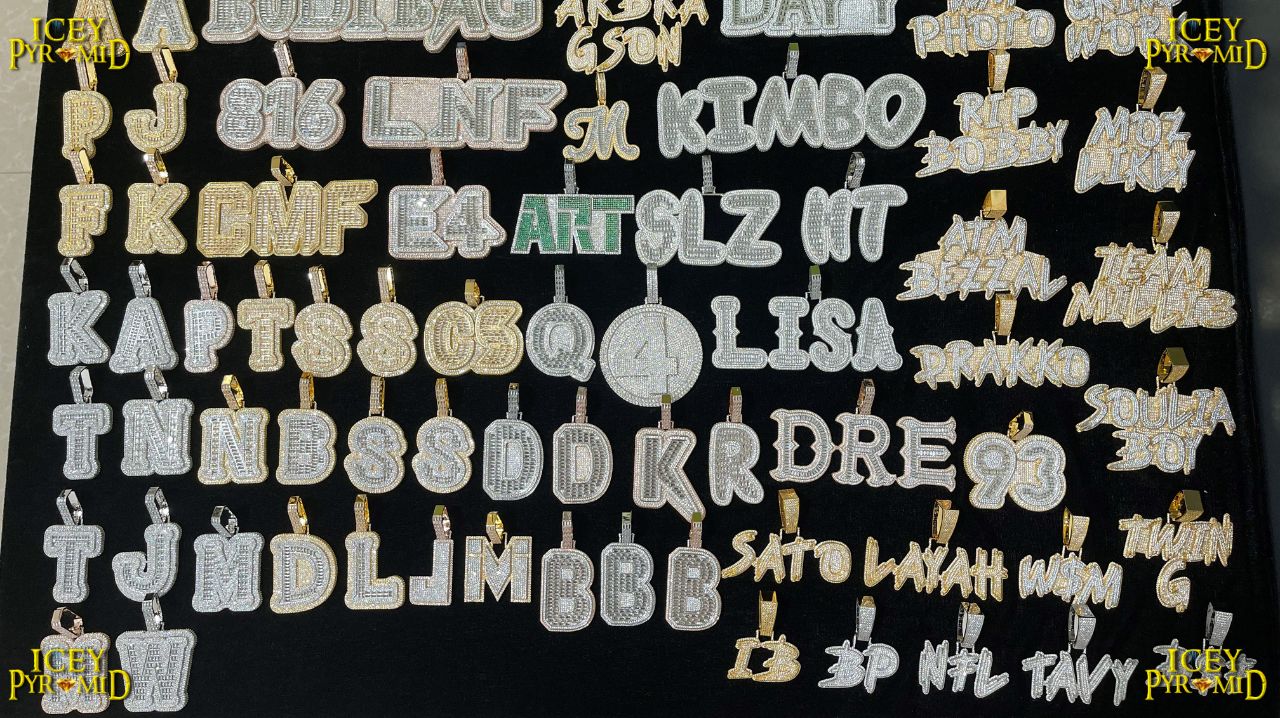 ICEY PYRAMID
A A BODYBAG
GSON
DAYY
PHOTO
ICEY PYRAMID
P J 816 LNF M KIMBO
RIP BOBBY
MOZ LIKLY
F K GMF E4 ART SLZ NT
AIM BEZZAL
TEAM MILLIS
K A P T S S C5 Q 4 LISA
DRAKKO
T N N B S S D D K R DRE 93
SOULJA BOY
T J M D L J M B B B
SATO LAYAH W$M
TWIN G
W
IB BP NFL TAVY
ICEY PYRAMID
ICEY PYRAMID